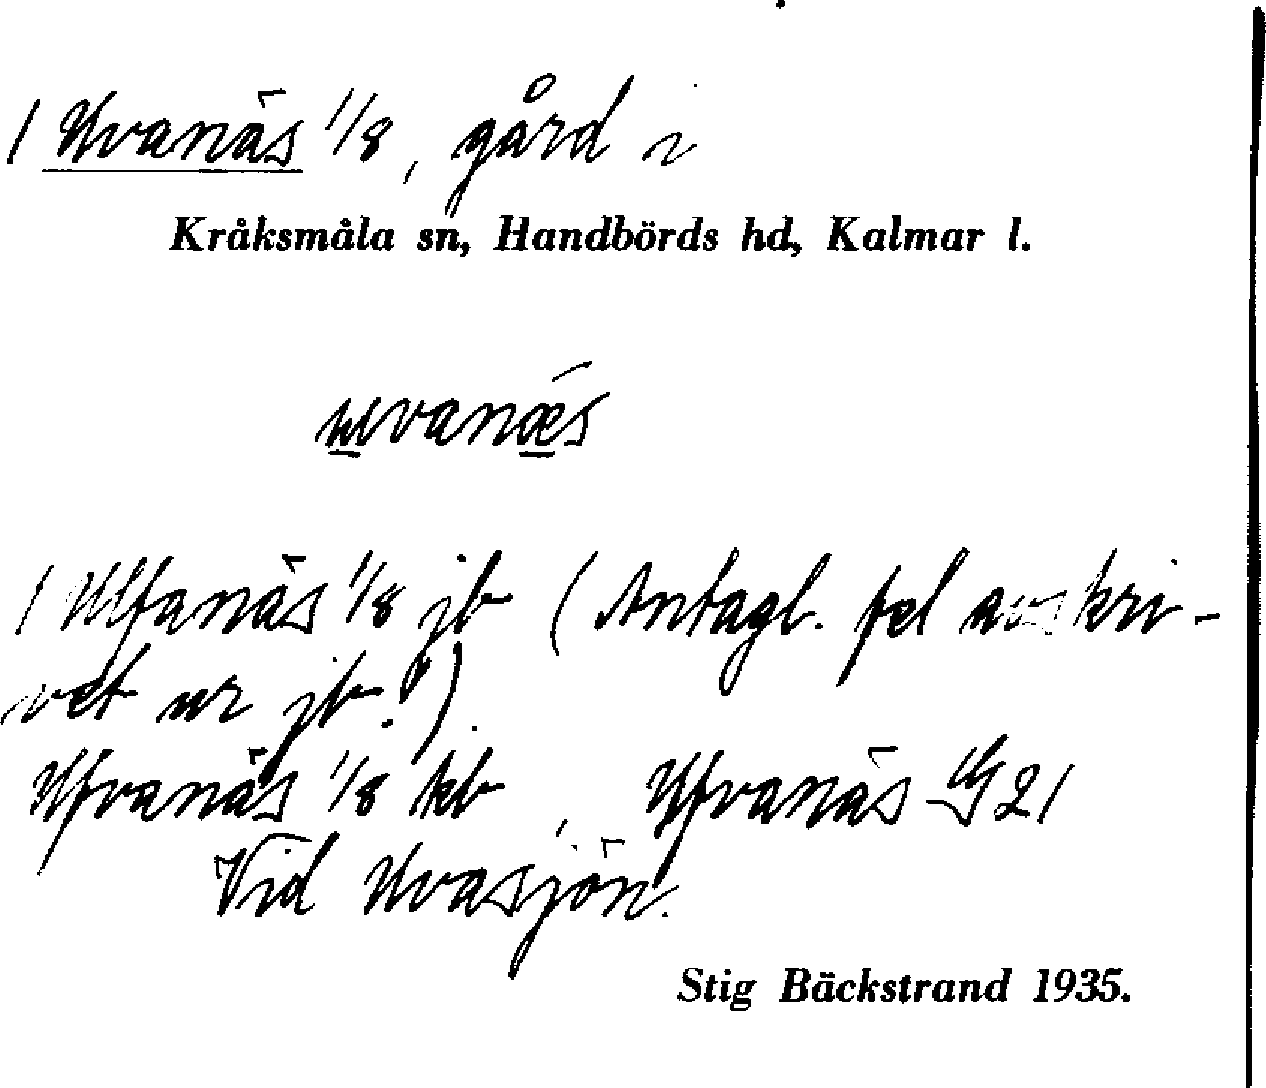 1 Uvanäs 1/8, gård i
Kråksmåla sn, Handbörds hd, Kalmar l.
uvanǽs
1 Ulfanäs 1/8 jb (Antagl. fel avskri-
vet ur jb.!).
Ufvanäs 1/8 kb, Ufvanäs G 21
Vid Uvasjön.
Stig Bäckstrand 1935.